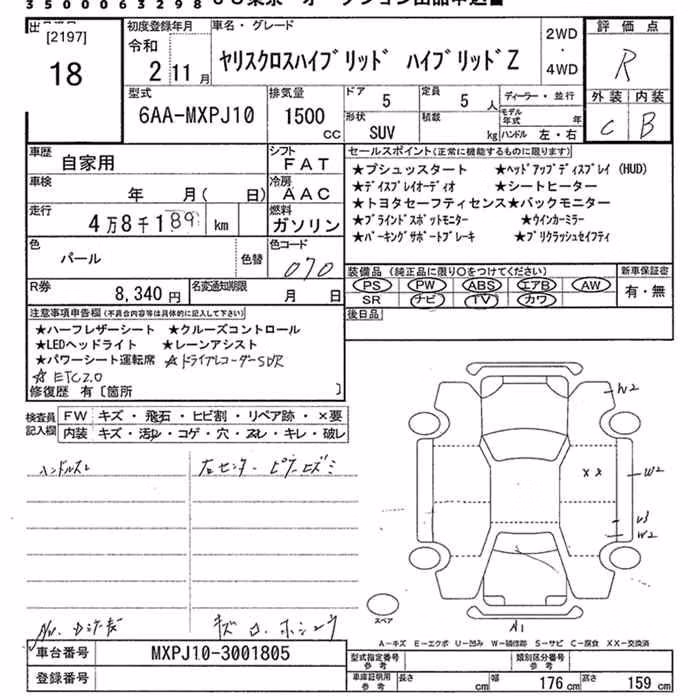 3500063298
出
[2197]
18
初度登録年月
令和
2 11月
車名・グレード
ヤリスクロスハイブリッド ハイブリッドZ
2WD
・
4WD
評価点
R
外装 内装
C B
型式
6AA-MXPJ10
排気量
1500
cc
ドア 5
定員 5 人
形状 SUV
積載 kg
ディーラー・並行
モデル年式 年
ハンドル 左・右
車歴 自家用
シフト FAT
車検 年 月( 日)
冷房 AAC
走行 4万8千189 km
燃料 ガソリン
色 パール 色替
色コード 070
R券 8,340円
名変通知期限 月 日
セールスポイント(正常に機能するものに限ります)
★プシュッスタート ★ヘッドアップディスプレイ (HUD)
★ディスプレイオーディオ ★シートヒーター
★トヨタセーフティセンス★バックモニター
★ブラインドスポットモニター ★ウインカーミラー
★パーキングサポートブレーキ ★プリクラッシュセイフティ
装備品 (純正品に限り○をつけてください)
PS PW ABS エアB AW
SR ナビ TV カワ
新車保証書
有・無
後日品
注意事項申告欄(不具合内容等は具体的に記入して下さい)
★ハーフレザーシート ★クルーズコントロール
★LEDヘッドライト ★レーンアシスト
★パワーシート運転席 ☆ドライブレコーダーSDR
☆ETC2.0
修復歴 有〔箇所 〕
検査員記入欄
FW キズ・飛石・ヒビ割・リペア跡・×要
内装 キズ・汚レ・コゲ・穴・スレ・キレ・破レ
ハンドルスレ
左センターピラーヒズミ
W2
XX
W2
W2
スペア
A1
A-キズ E-エクボ U-凹み W-補修跡 S-サビ C-腐食 XX-交換済
車台番号 MXPJ10-3001805
登録番号
型式指定番号 参考
類別区分番号 参考
車庫証明用 参考
長さ cm 幅 176cm 高さ 159cm